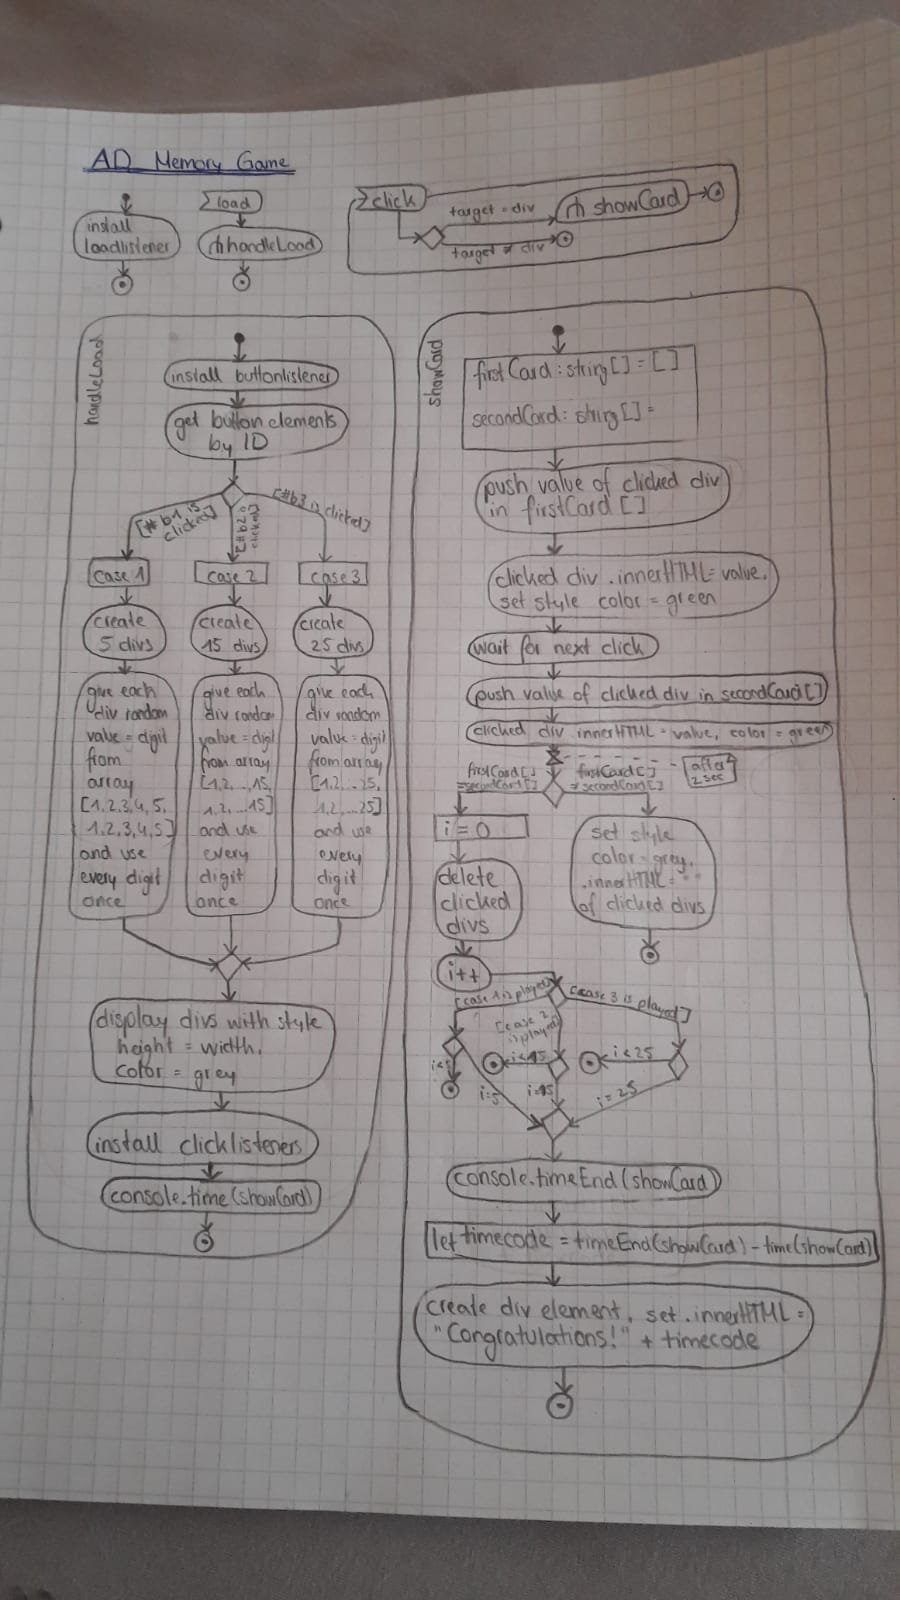 AD Memory Game
install
loadlistener
load
handleLoad
click
target = div
showCard
target ≠ div
handleLoad
install buttonlistener
get button elements
by ID
[#b1 is
clicked]
[#b2 is
clicked]
[#b3 is clicked]
case 1
case 2
case 3
create
5 divs
create
15 divs
create
25 divs
give each
div random
value = digit
from
array
[1,2,3,4,5,
1,2,3,4,5]
and use
every digit
once
give each
div random
value = digit
from array
[1,2,...,15,
1,2,...15]
and use
every
digit
once
give each
div random
value = digit
from array
[1,2,...25,
1,2,...25]
and use
every
digit
once
display divs with style
height = width,
color = grey
install clicklisteners
console.time(showCard)
showCard
firstCard: string[] = []
secondCard: string[] =
push value of clicked div
in firstCard []
clicked div .innerHTML = value,
set style color = green
wait for next click
push value of clicked div in secondCard []
clicked div .innerHTML = value, color = green
firstCard[]
= secondCard[]
firstCard[]
≠ secondCard[]
after
2 sec
i = 0
delete
clicked
divs
set style
color = grey,
.innerHTML = " "
of clicked divs
i++
[case 1 is played]
[case 2
is played]
[case 3 is played]
i<5
i<15
i<25
i=5
i=15
i=25
console.timeEnd(showCard)
let timecode = timeEnd(showCard) - time(showCard)
create div element, set .innerHTML =
"Congratulations!" + timecode